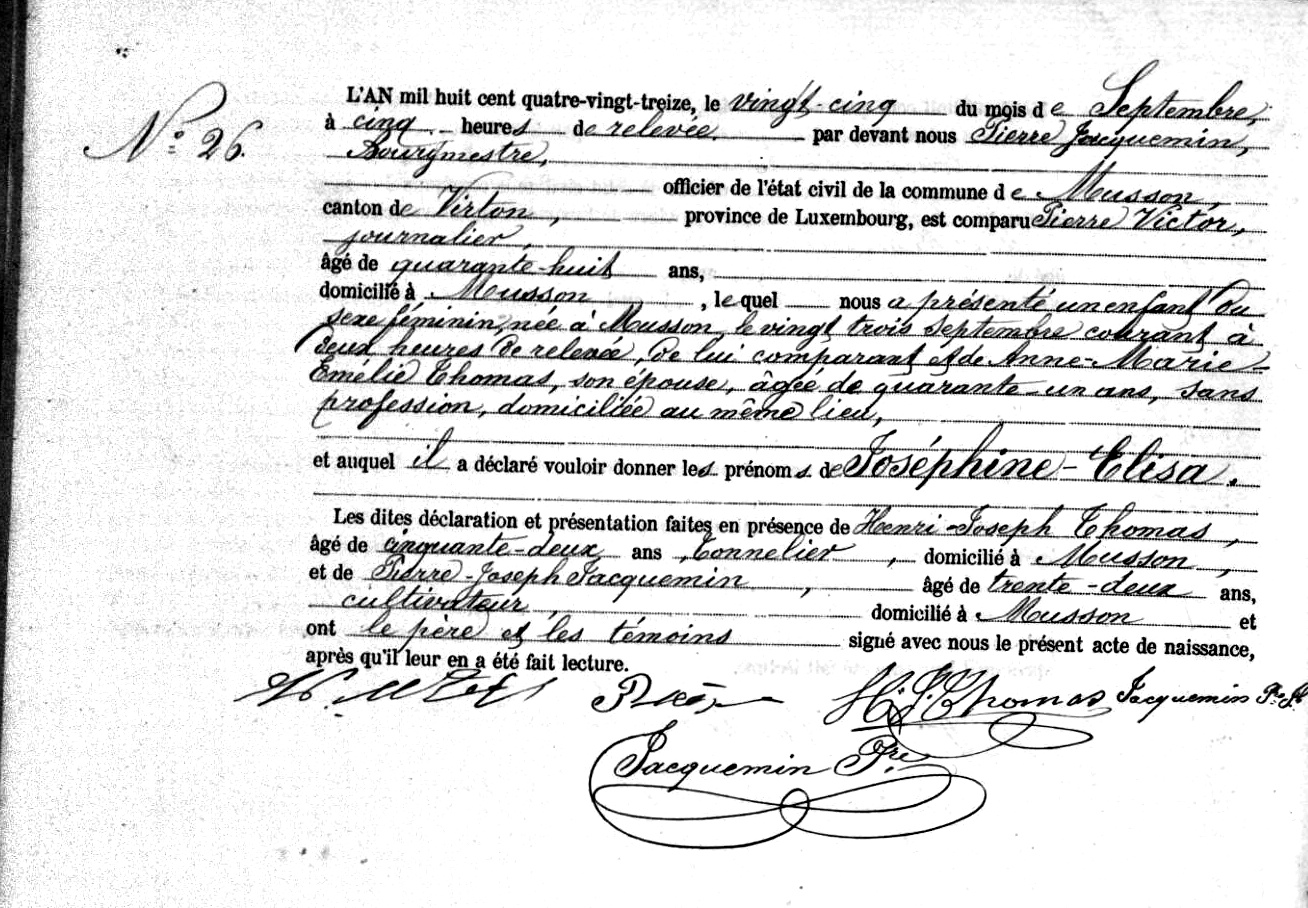 N.º 26.
L'AN mil huit cent quatre-vingt-treize, le vingt-cinq du mois de Septembre,
à cinq heures de relevée par devant nous Pierre Jacquemin,
Bourgmestre,
officier de l'état civil de la commune de Musson,
canton de Virton, province de Luxembourg, est comparu Pierre Victor,
journalier,
âgé de quarante-huit ans,
domicilié à Musson, lequel nous a présenté un enfant du
sexe féminin, née à Musson, le vingt trois septembre courant à
deux heures de relevée, de lui comparant et de Anne-Marie-
Emélie Thomas, son épouse, âgée de quarante-un ans, sans
profession, domiciliée au même lieu,
et auquel il a déclaré vouloir donner les prénoms de Joséphine-Elisa.
Les dites déclaration et présentation faites en présence de Henri-Joseph Thomas,
âgé de cinquante-deux ans, Tonnelier, domicilié à Musson,
et de Pierre-Joseph Jacquemin, âgé de trente-deux ans,
cultivateur, domicilié à Musson et
ont le père et les témoins signé avec nous le présent acte de naissance,
après qu'il leur en a été fait lecture.
H. J. Thomas Jacquemin Pre. J.
Jacquemin Pre